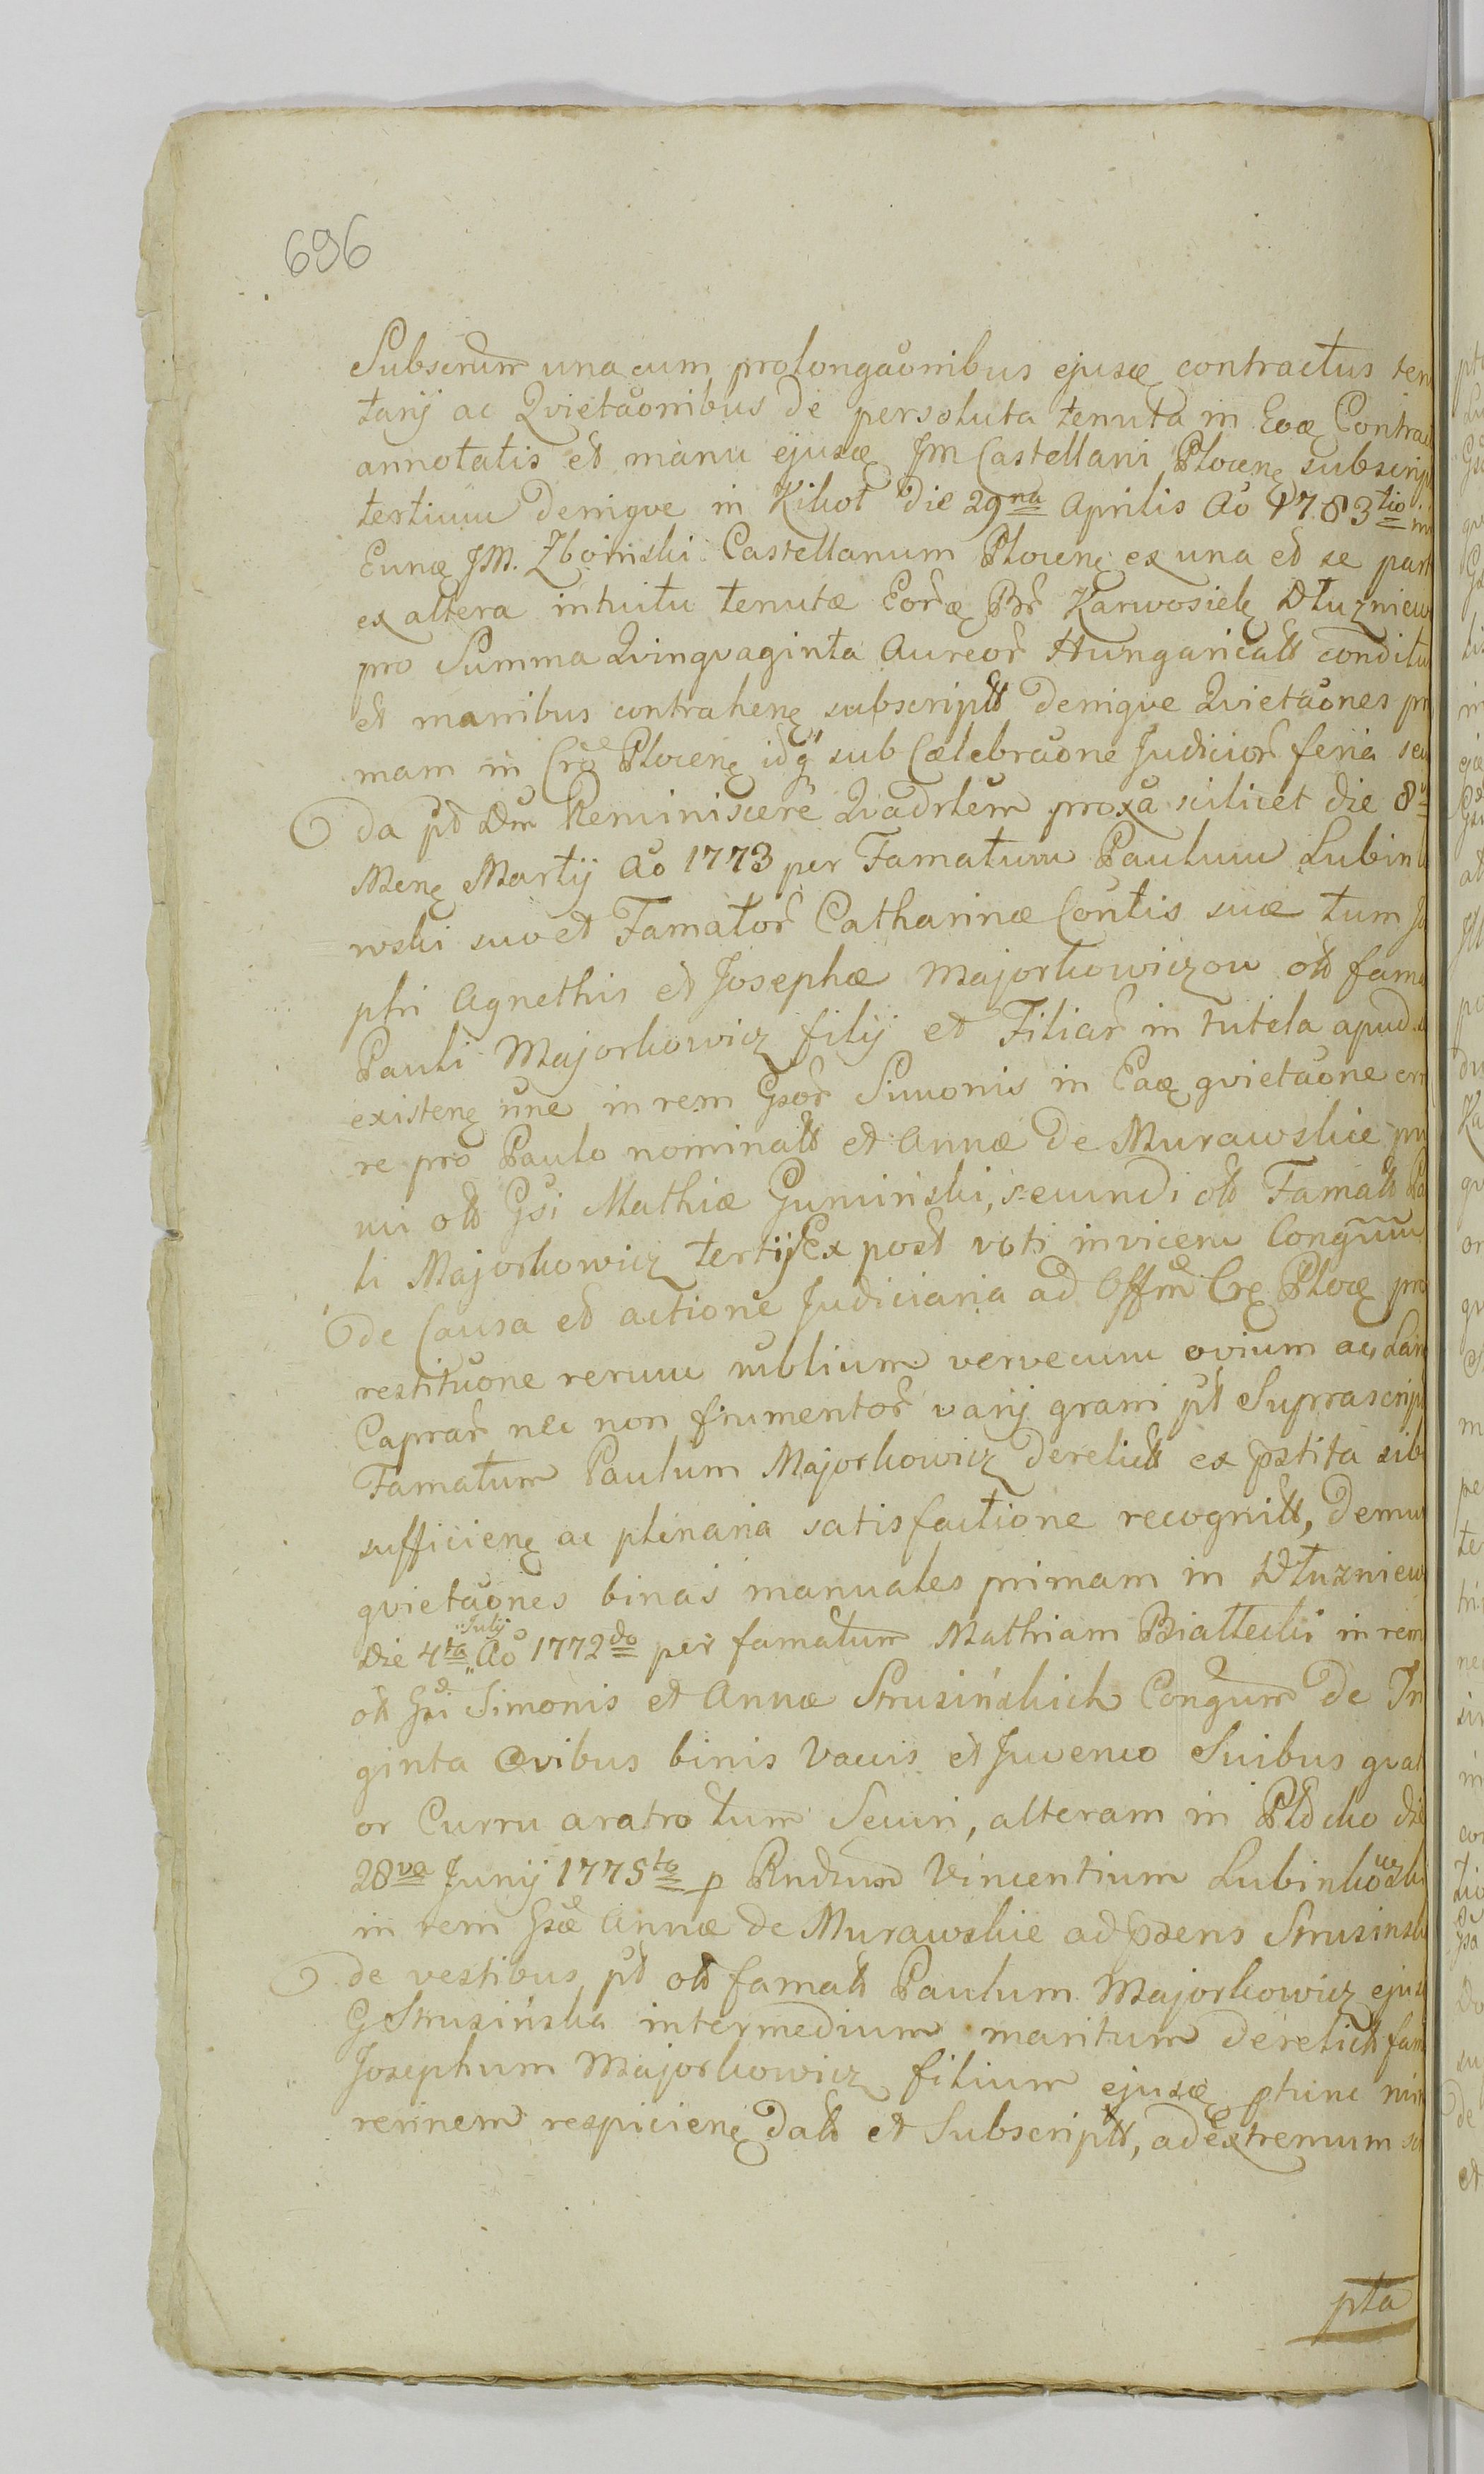 696
Subscrum una cum prolongaonibus ejusdę contractus ten
tarij ac Qvietaonibus de persoluta tenuta in Eodę Contrac
annotatis et manu ejusdę JM Castellani Plocenę subscrip
tertium denique in Kikoł die 29na Aprilis Ao 1783tio in
Eundę JM. Zboiński Castellanum Plocenę ex una et se part
ex altera intuitu tenutæ Eordę Br Karwosielę Dłuzniew
pro Summa Qvinqvaginta Aureor Hungaricalt conditu
et manibus contrahenę subscriptt deniqve Qvietaones pri
mam in Cro Plocenę idq sub Cælebraone Judicior feria secu
da pt Dm Reminiscere Qvadrlem proxa scilicet die 8va
Menę Martij Ao 1773 per Famatum Paulum Lubinko
wski suo et Famator Catharinæ Contis suæ tum Jo
phi Agnethis et Josephæ Majorkowiczow olt fama
Pauli Majorkowicz filij et Filiar in tutela apud
existenę une in rem Gsor Simonis in Eadę qvietaone erro
re pro Paulo nominatt et Annæ de Murawskie pri
mi olt Gsi Mathiæ Gumiński, secundi olt Famatt Pa
li Majorkowicz tertij Ex post voti invicem Congum
de Causa et actione Judiciaria ad Offm Crę Plocę pro
restituone rerum mblium vervecum ovium ac
Caprar nec non frumentor varij grani pt Suprascrip
Famatum Paulum Majorkowicz derelictt ex pstita sib
sufficienę ac plenaria satisfactione recognitt, demum
qvietaones binas manuales primam in Dłuzniew
Die 4ta Julij Ao 1772do per famatum Mathiam Białłecki in rem
olt Gsi Simonis et Annæ Strusińskich Congum de Tri
ginta Ovibus binis Vaccis et Juvenco Suibus qvat
or Curru aratro tum Securi, alteram in Płocko die
28va Junij 1775to p Rndum Vincentium Lubinkowski
in rem Gsæ Annæ de Murawskie ad psens Strusinski
de vestibus pt olt famatt Paulum Majorkowicz ejus
G Strusińska intermedium maritum derelictt fam
Josephum Majorkowicz filium ejusdę
rennem respicienę datt et Subscriptt, ad Extremum
pta